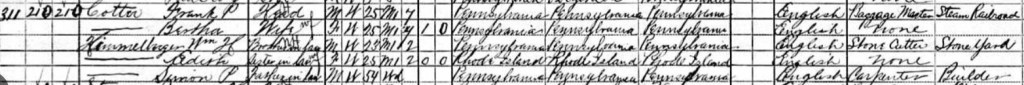 311 210 210 Cotter Frank P Head M W 25 M 4 Pennsylvania Pennsylvania Pennsylvania English Baggage Master Steam Railroad
— Bertha Wife F W 25 M 4 1 0 Pennsylvania Pennsylvania Pennsylvania English None
Himmelberger Wm H Brother in law M W 23 M 2 Pennsylvania Pennsylvania Pennsylvania English Stone Cutter Stone Yard
— Edith Sister in law F W 25 M 2 0 0 Rhode Island Rhode Island Rhode Island English None
— P Father in law M W 54 Wd Pennsylvania Pennsylvania Pennsylvania English Carpenter Builder